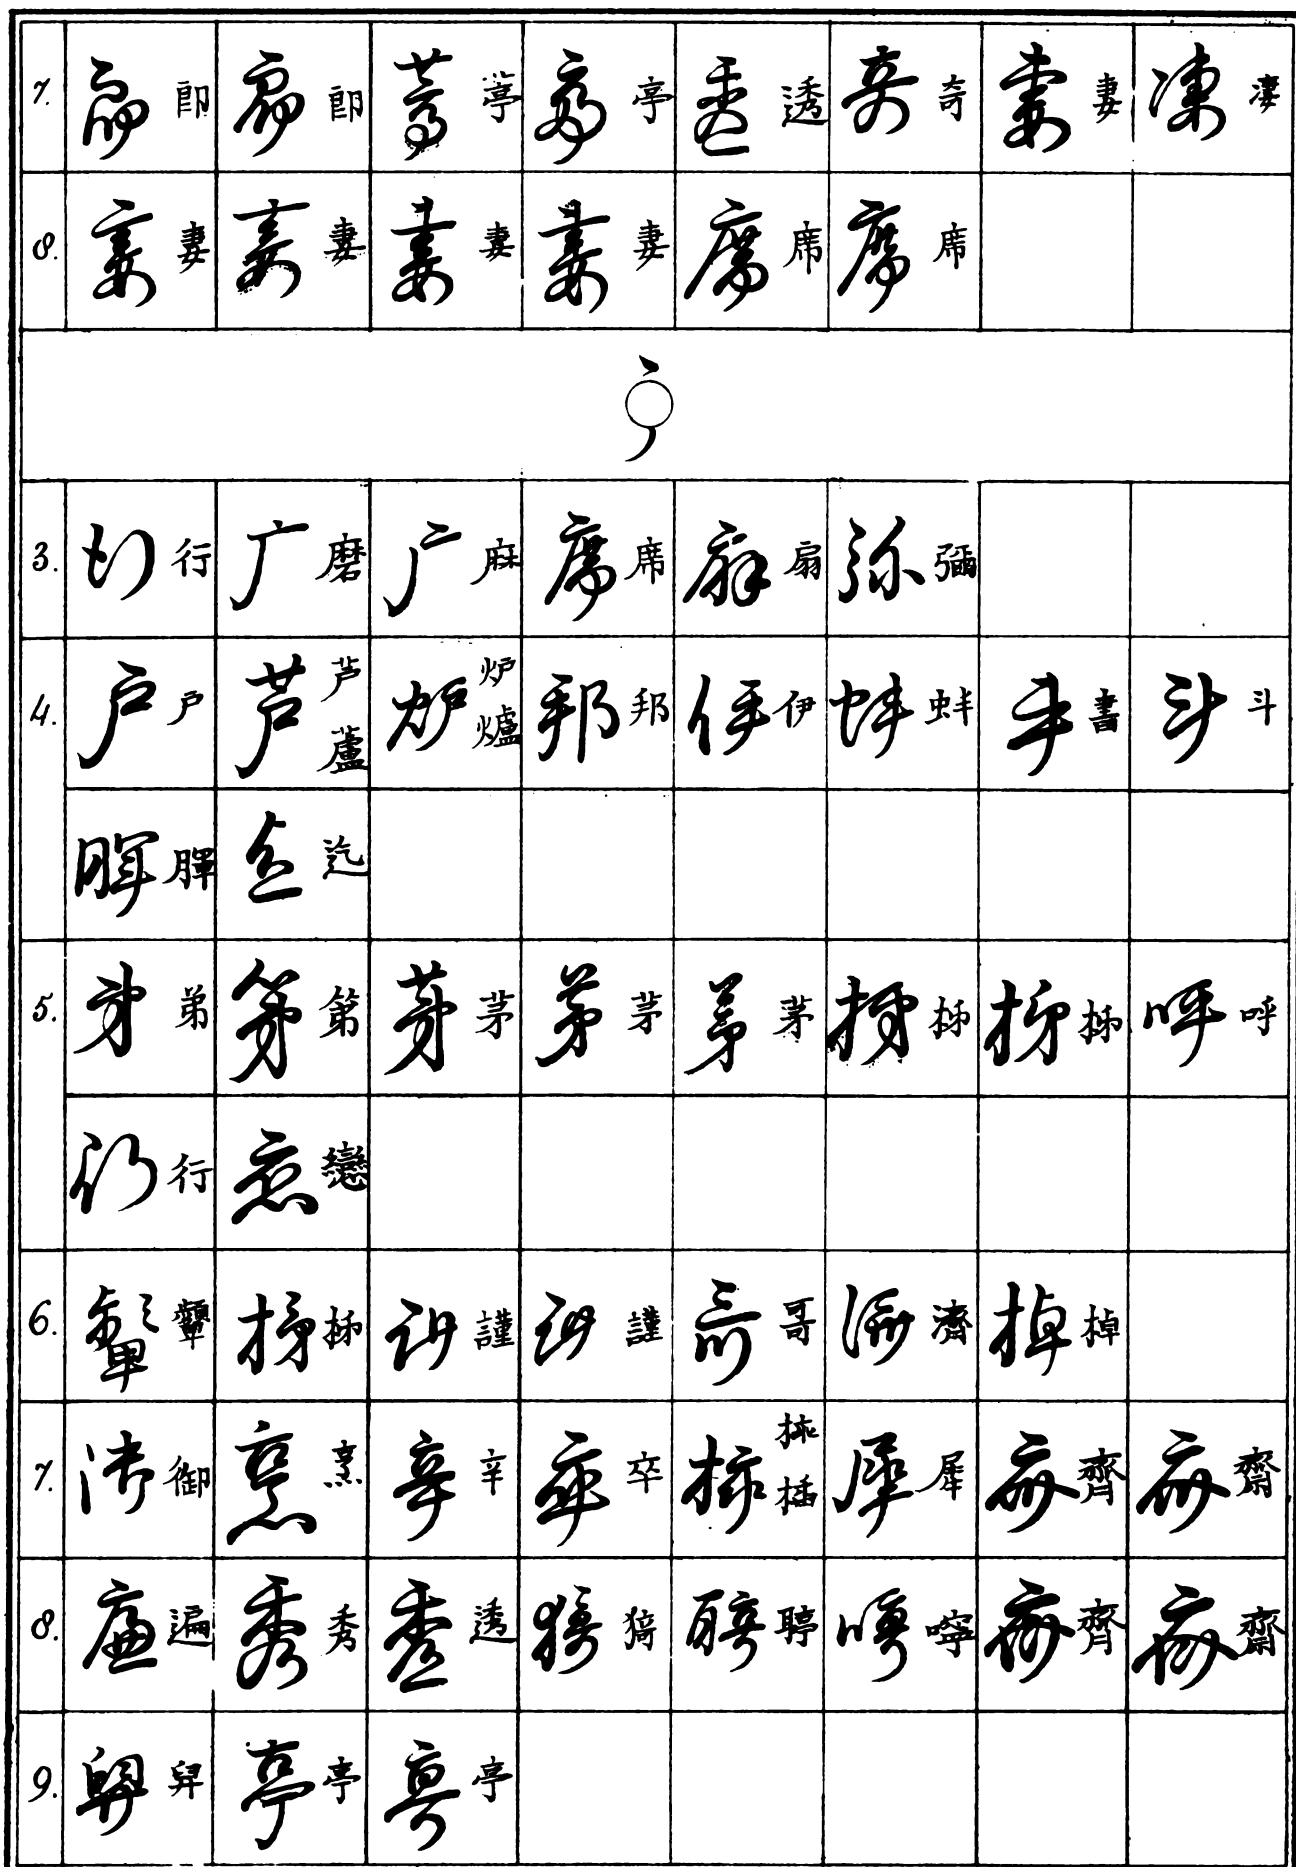 7. 即 即 葶 亭 透 奇 妻 凄
8. 妻 妻 妻 妻 席 席
3. 行 磨 麻 席 扇 彌
4. 户 芦 蘆 炉 爐 邦 伊 蚌 書 斗
腪 迄
5. 弟 第 茅 茅 茅 㧗 㧗 呼
行 戀
6. 㧗 謹 謹 哥 濟 掉
7. 御 烹 辛 卒 插 犀 齊 齋
8. 遍 秀 透 猗 聹 嚀 齊 齋
9. 舁 亭 亭